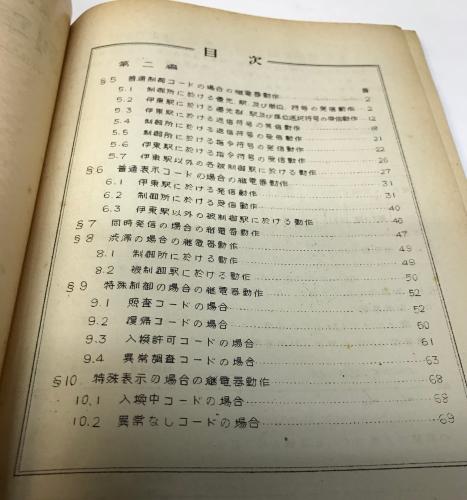 目 次
第二編
§5 普通制御コードの場合の継電器動作 2
5.1 制御所に於ける優先、駅及び単位、符号の発信動作 2
5.2 伊東駅に於ける優先群、駅及び単位選択符号の受信動作 12
5.3 伊東駅に於ける返信符号の発信動作
5.4 制御所に於ける返信符号の受信動作
5.5 制御所に於ける指令符号の発信動作 21
5.6 伊東駅に於ける指令符号の受信動作 22
5.7 伊東駅以外の各被制御駅に於ける動作 26
§6 普通表示コードの場合の継電器動作 27
6.1 伊東駅に於ける発信動作 31
6.2 制御所に於ける受信動作 31
6.3 伊東駅以外の被制御駅に於ける動作 40
§7 同時発信の場合の継電器動作 46
§8 渋滞の場合の継電器動作 47
8.1 制御所に於ける動作 49
8.2 被制御駅に於ける動作 49
§9 特殊制御の場合の継電器動作 50
9.1 照査コードの場合 52
9.2 復帰コードの場合 52
9.3 入換許可コードの場合 60
9.4 異常調査コードの場合 61
63
§10 特殊表示の場合の継電器動作 68
10.1 入換中コードの場合 68
10.2 異常なしコードの場合 69